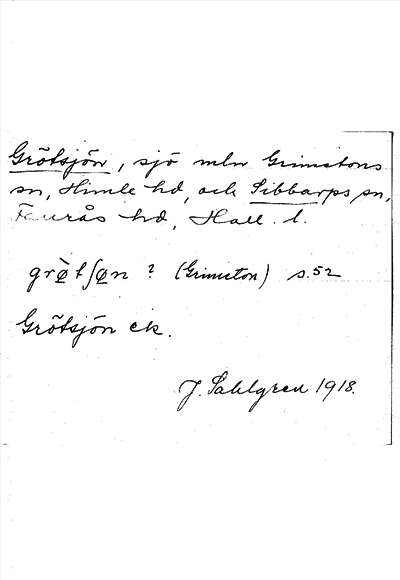 Grötsjön, sjö mln Grimetons
sn, Himle hd, och Sibbarps sn,
Faurås hd, Hall. l.
grø̀tʃøn ? (Grimeton) s. 52
Grötsjön ek.
J. Sahlgren 1918.